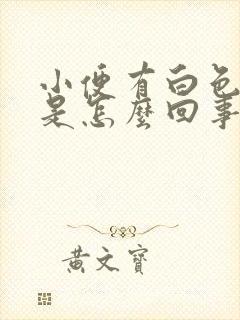 小便有白色
是怎麼回事
黃文寶